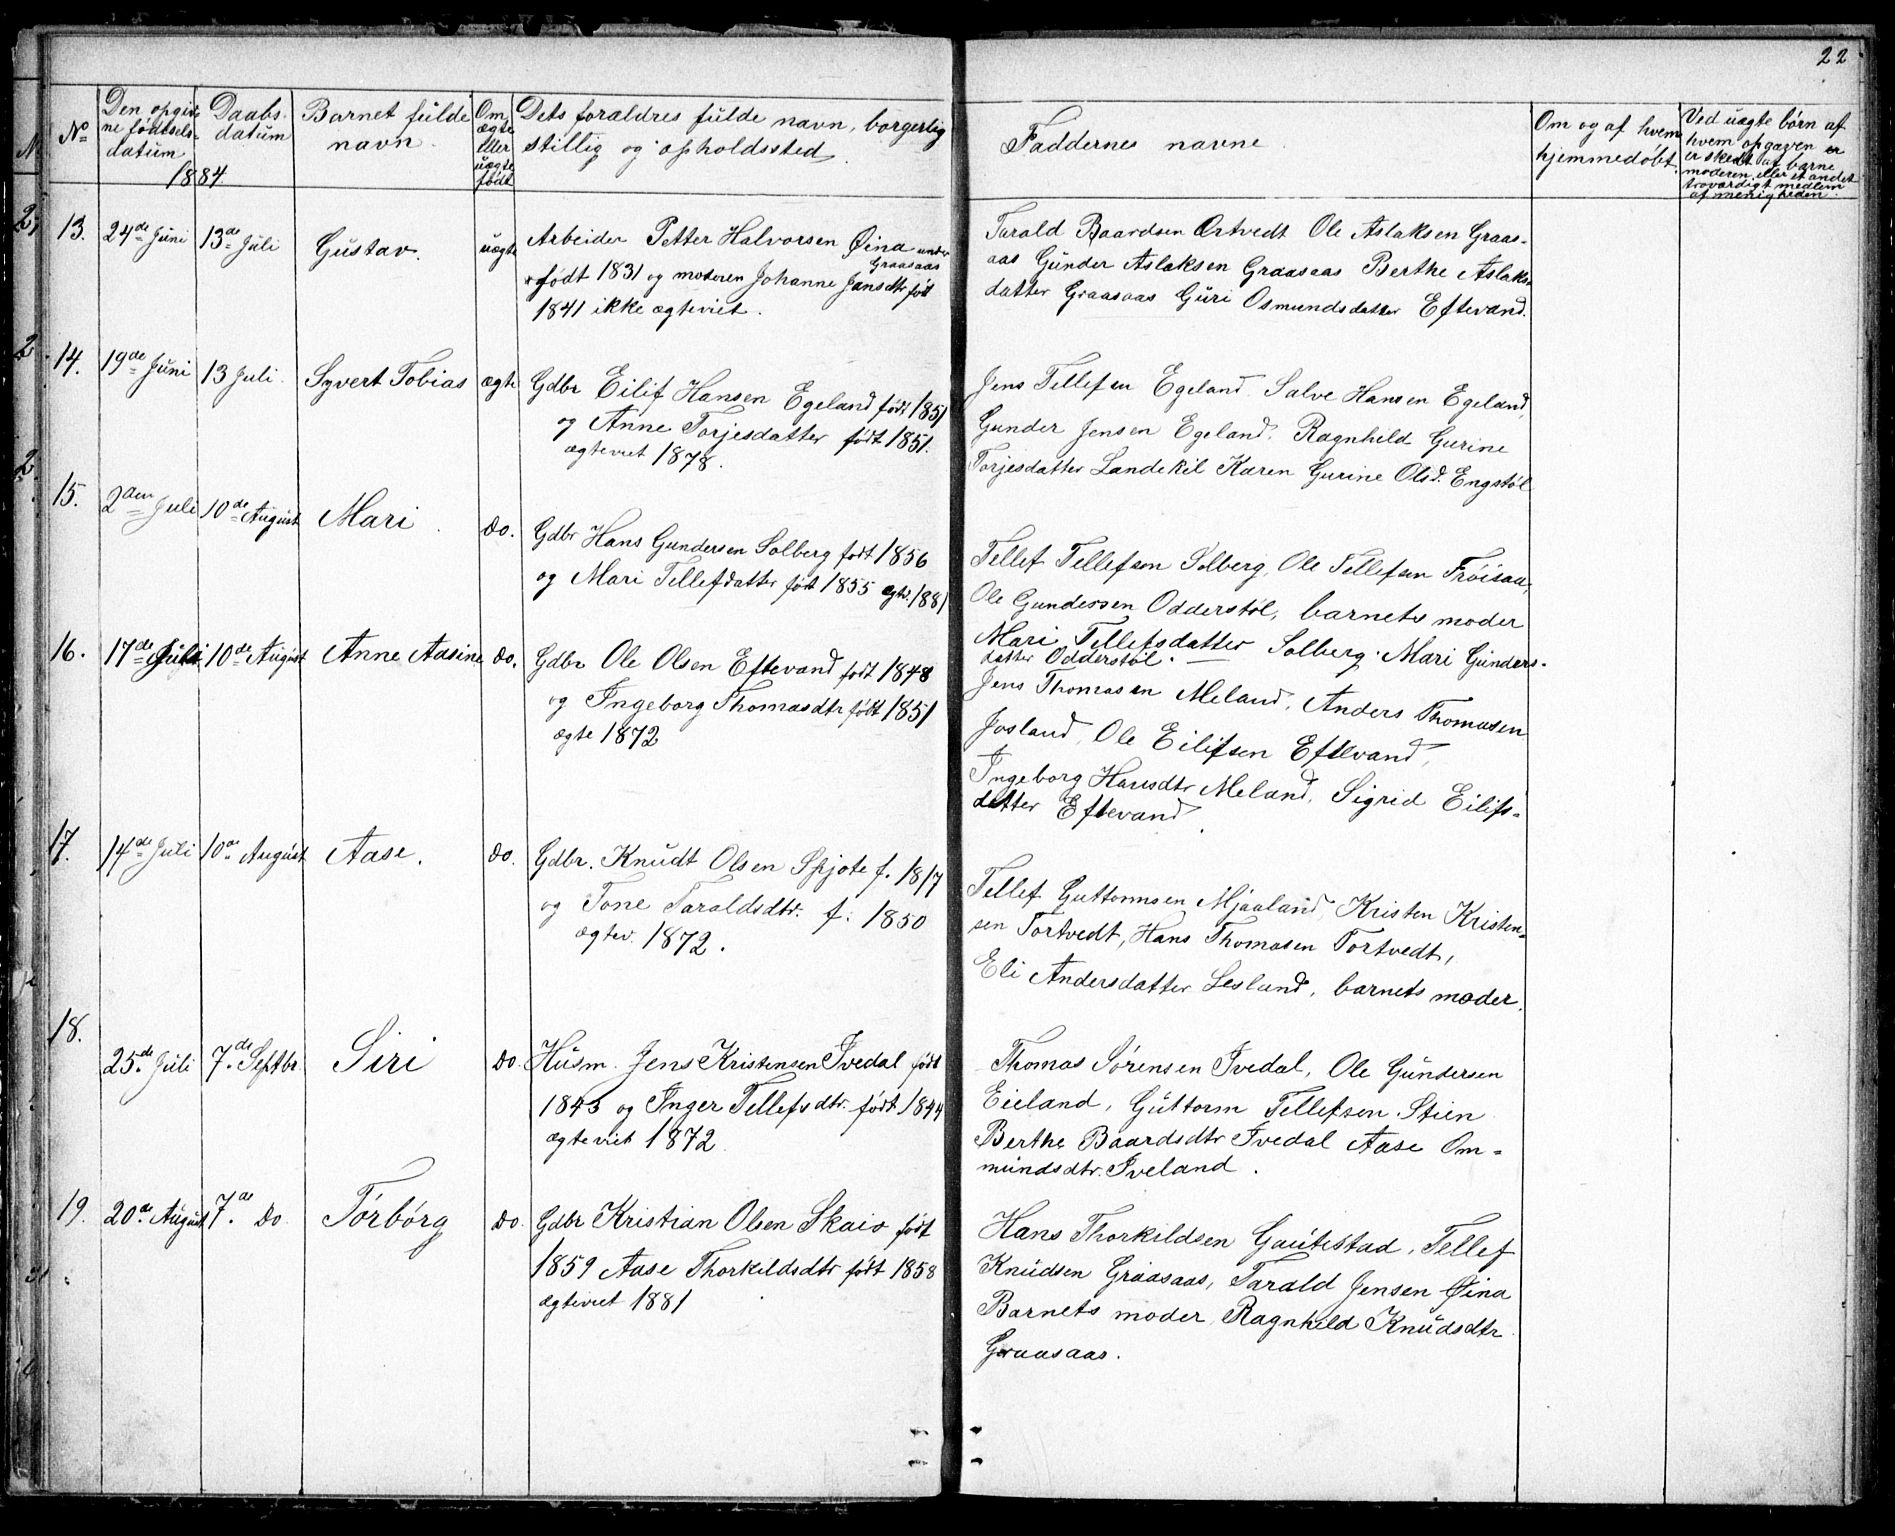 22
No
Den opgiv-
ne fødsels-
datum
1884
Daabs-
datum
Barnet fulde
navn.
Om
ægte
eller
uægte
født
Dets forældres fulde navn, borgerlig
stillig og opholdssted.
Faddernes navne.
Om og af hvem
hjemmedøbt.
Ved uægte børn af
hvem opgaven er
er skedt af barne
moderen eller et andet
troværdigt medlem
af menigheden.
13. 24de Juni 13de Juli Gustav. uægte
Arbeider Petter Halvorsen Øina under
Graasaas
født 1831 og moderen Johanne Jansdtr født
1841 ikke ægteviet.
Tarald Baardsen Ørtvedt Ole Aslaksen Graas-
aas Gunder Aslaksen Graasaas Berthe Aslaks-
datter Graasaas Guri Osmundsdatter Eftevand.
14. 19de Juni 13 Juli. Syvert Tobias ægte
Gdbr Eilif Hansen Egeland født 1851
og Anne Torjesdatter født 1851.
ægteviet 1878.
Jens Tellefsen Egeland. Salve Hansen Egeland,
Gunder Jensen Egeland. Ragnhild Gurine
Torjesdatter Landekil Karen Gurine Olsd. Engstøl
15. 2den Juli 10de August Mari. do.
Gdbr Hans Gundersen Solberg født 1856
og Mari Tellefdatter født 1855 ægtv. 1881
Tellef Tellefsen Solberg, Ole Tellefsen Frøisaa,
Ole Gundersen Odderstøl, barnets moder
Mari Tellefsdatter Solberg. Mari Gunders-
datter Odderstøl. —
16. 17de Juli 10de August Anne Aasine do.
Gdbr Ole Olsen Eftevand født 1848
og Ingeborg Thomasdtr født 1851
ægte 1872
Jens Thomasen Meland, Anders Thomasen
Josland, Ole Eilifsen Eftevand,
Ingeborg Hansdtr Meland, Sigrid Eilifs-
datter Eftevand
17. 14de Juli 10de August Aase. do.
Gdbr. Knudt Olsen Spjote f. 1817
og Tone Taraldsdtr. f. 1850
ægtev. 1872.
Tellef Guttormsen Mjaaland, Kristen Kristen-
sen Tortvedt, Hans Thomasen Tortvedt,
Eli Andersdatter Lesland, barnets moder.
18. 25de Juli 7de Septbr. Siri do.
Husm. Jens Kristensen Ivedal født
1843 og Inger Tellefsdtr. født 1844
ægteviet 1872.
Thomas Sørensen Ivedal, Ole Gundersen
Eieland, Guttorm Tellefsen Stien
Berthe Baardsdtr Ivedal Aase Om-
mundsdtr. Iveland.
19. 20de August 7de do. Torborg do.
Gdbr Kristian Olsen Skaio født
1859 Aase Thorkildsdtr født 1858
ægteviet 1881
Hans Thorkildsen Gautestad, Tellef
Knudsen Graasaas, Tarald Jensen Øina
Barnets moder, Ragnhild Knudsdtr
Graasaas.